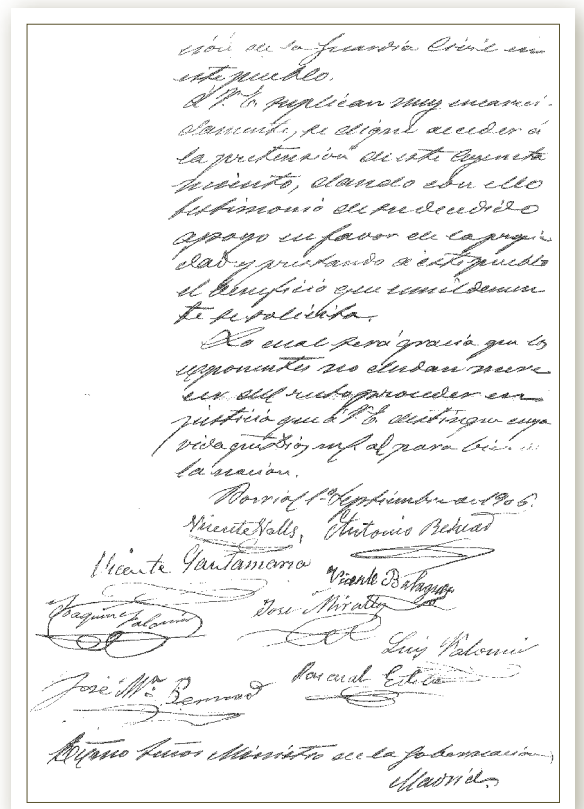 sión de la Guardia Civil en
este pueblo.
A V. E. suplican muy encareci-
damente, se digne acceder á
la pretensión de este Ayunta
miento, dando con ello
testimonio de su decidido
apoyo en favor de la propie
dad y prestando á este pueblo
el beneficio que umildemen
te se solicita.
Lo cual será gracia que los
esponentes no dudan mere
cer del recto proceder en
justicia que á V. E. distingue cuya
vida guarde para bien
la nación.
Borriol 1º Septiembre de 1906.
Vicente Valls, Antonio Bernad
Vicente Santamaria
Vicente Balaguer
Joaquin Palomir José Miralles
Luis Palomir
José Mª Bernad Pascual Esteve
Exsmo Señor Ministro de la Gobernacion,
Madrid.